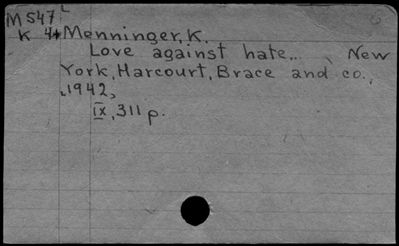 M547
K 44 Menninger, K.
Love against hate... New
York, Harcourt, Brace and co.,
1942,
IX, 311 p.